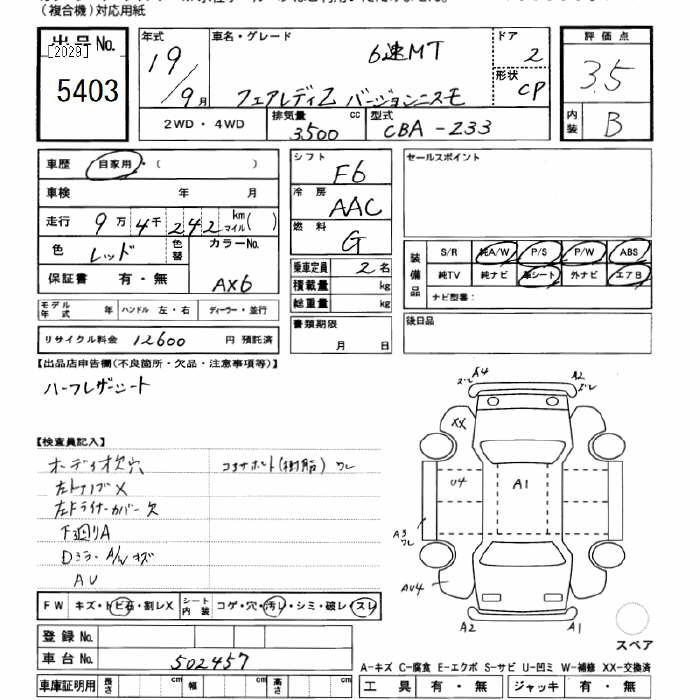 (複合機)対応用紙
出品No.
[2029]
5403
年式 19/9月
車名・グレード 6速MT
フェアレディZ バージョンニスモ
ドア 2
形状 CP
評価点 3.5
内装 B
2WD・4WD
排気量 3500 cc
型式 CBA-Z33
車歴 自家用・( )
車検 年 月
走行 9万4千242 km マイル( )
色 レッド 色替 カラーNo. AX6
保証書 有・無
モデル年式 年 ハンドル 左・右 ディーラー・並行
リサイクル料金 12600 円 預託済
シフト F6
冷房 AAC
燃料 G
乗車定員 2名
積載量 kg
総重量 kg
書類期限
月 日
セールスポイント
装備品
S/R 純A/W P/S P/W ABS
純TV 純ナビ 革シート 外ナビ エアB
ナビ型番:
後日品
【出品店申告欄(不良箇所・欠品・注意事項等)】
ハーフレザーシート
【検査員記入】
オーディオ欠穴
コアサポート(樹脂)ワレ
左ドライナーカバー欠
下廻りA
Dミラー A/Wキズ
AU
A4 A2
ズレ ズレ
XX
U4 A1
A3
ワレ
AU4
A2 A1
スペア
FW キズ・トビ石・割レX シート内装 コゲ・穴・汚レ・シミ・破レ・スレ
登録No.
車台No. 502457
車庫証明用 長さ cm 幅 cm 高さ cm
A-キズ C-腐食 E-エクボ S-サビ U-凹ミ W-補修 XX-交換済
工具 有・無 ジャッキ 有・無